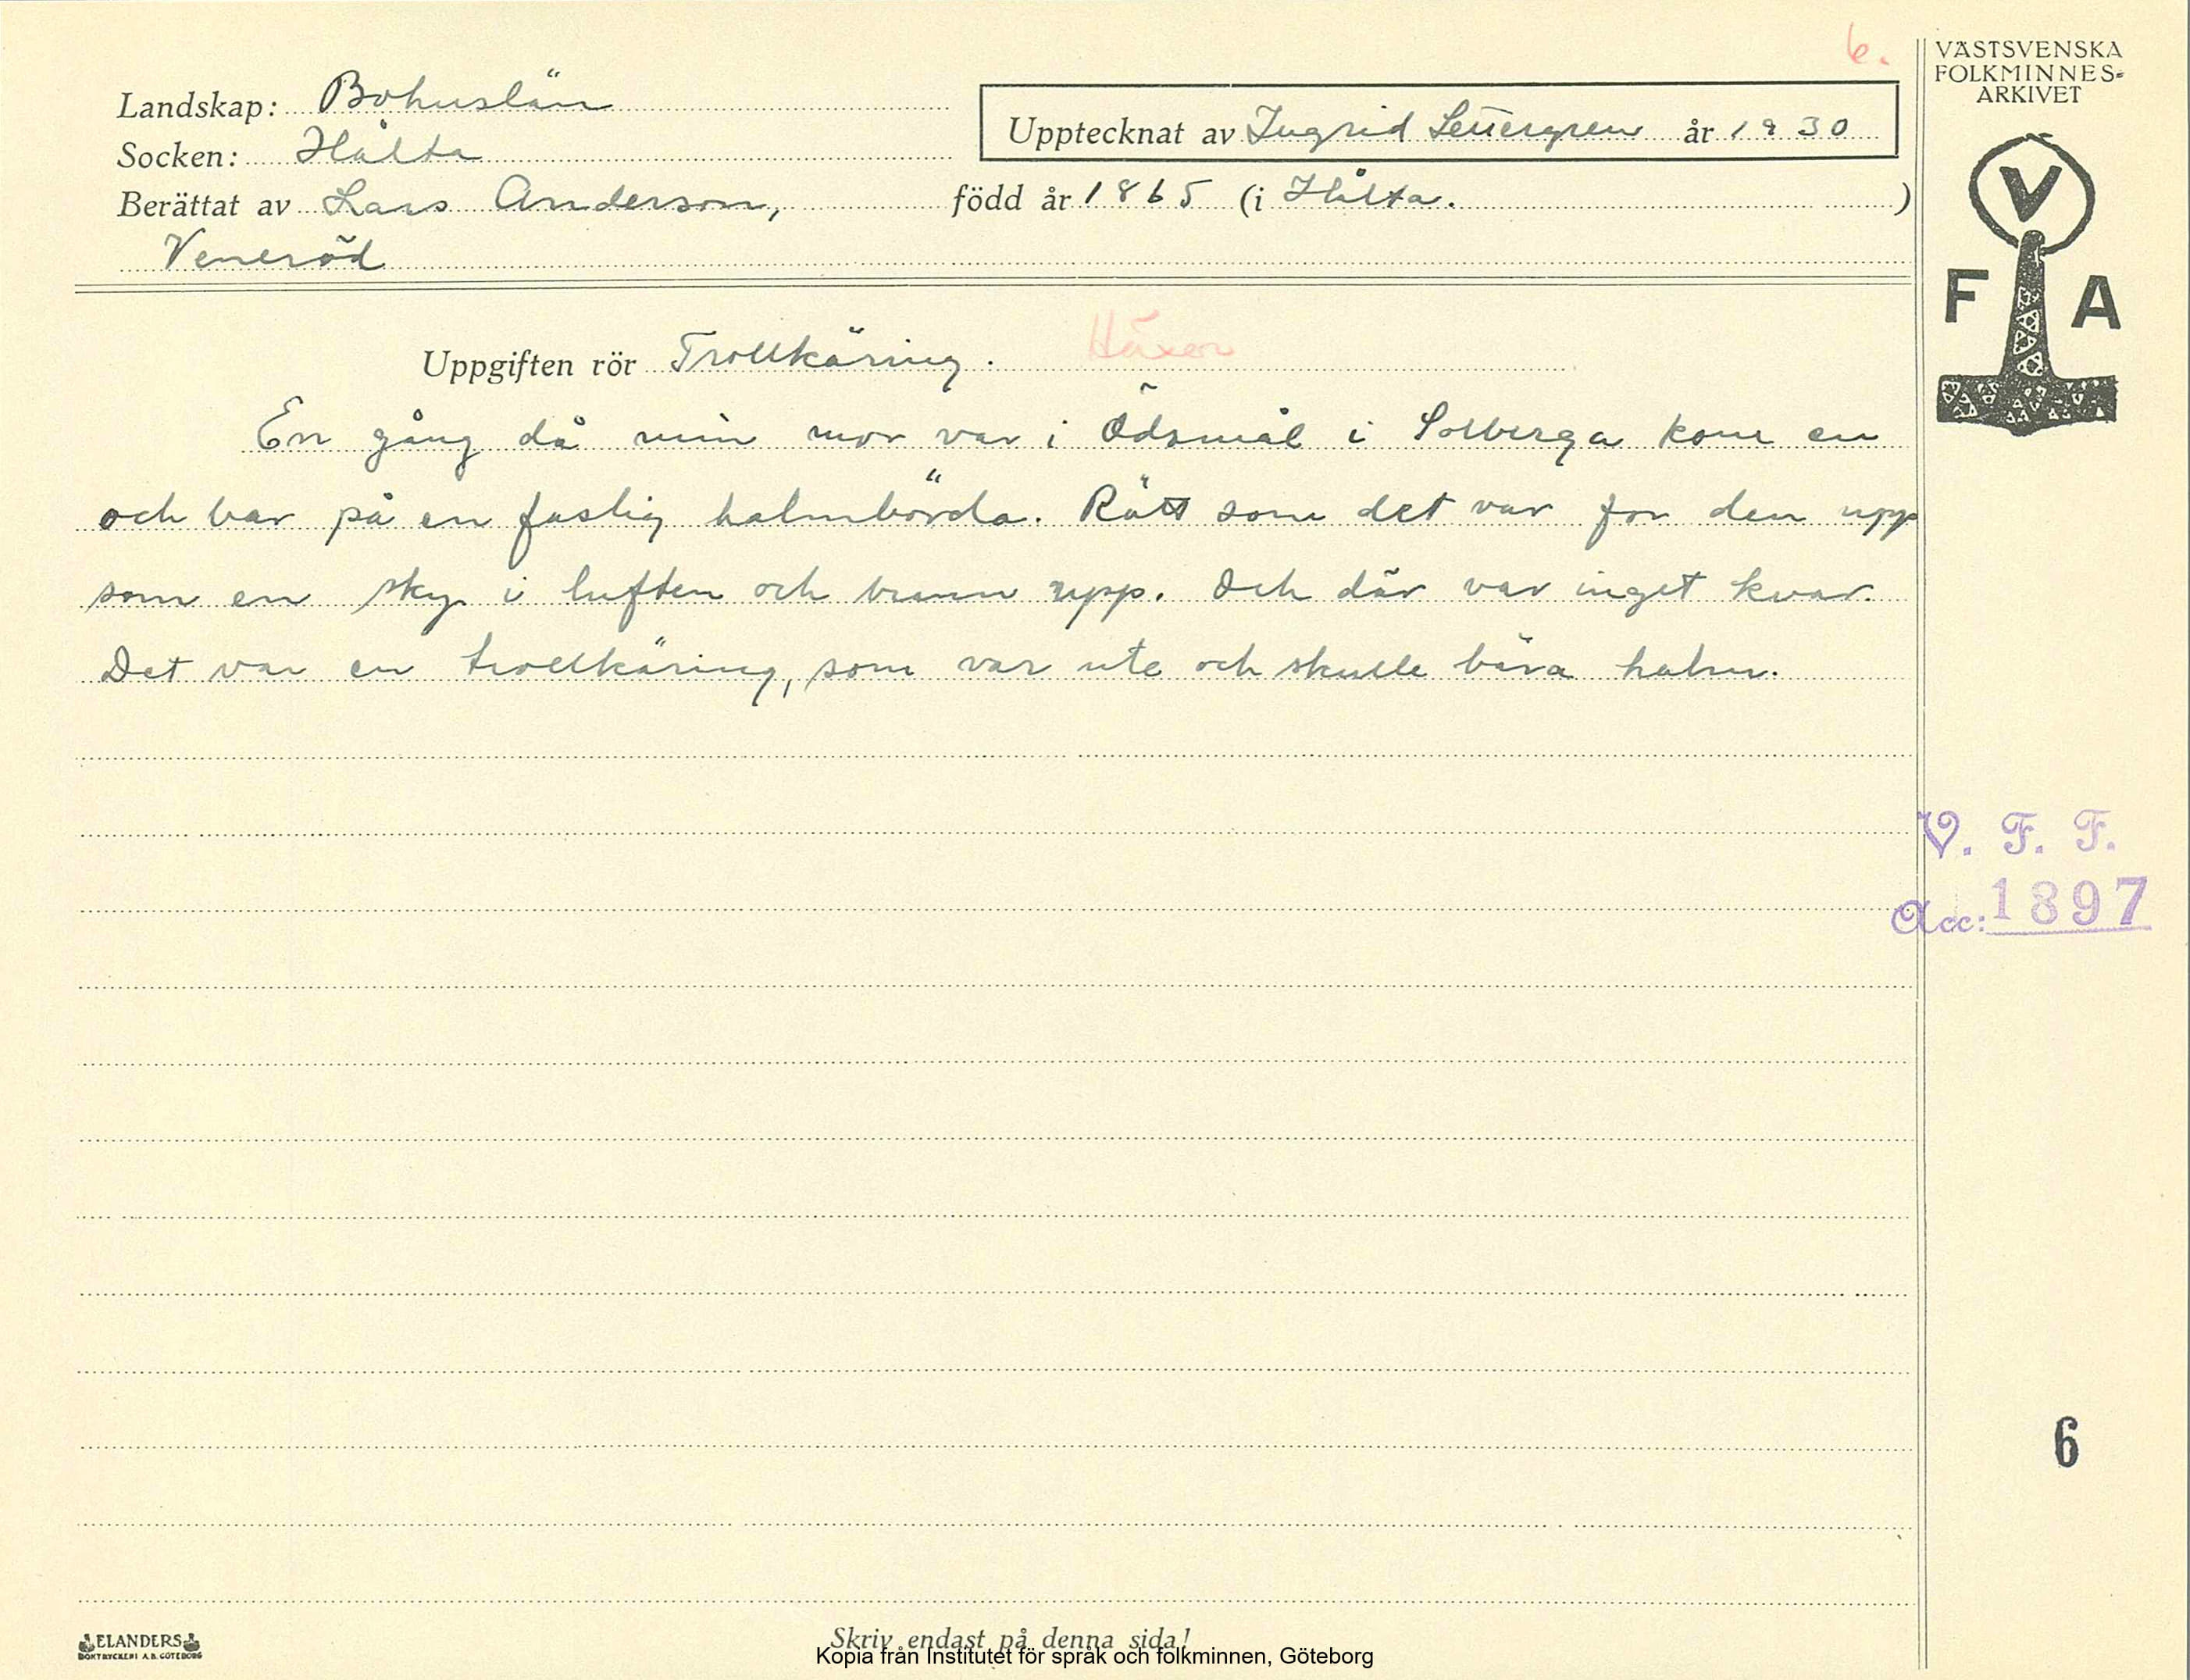 6.
VÄSTSVENSKA
FOLKMINNES-
ARKIVET
Landskap: Bohuslän
Upptecknat av Ingrid Settergren år 1930
Socken: Hålta
Berättat av Lars Anderson, född år 1865 (i Hålta. )
Veneröd
V
F A
Uppgiften rör Trollkäring. Häxor
En gång då min mor var i Ödsmål i Solberga kom en
och bar på en faslig halmbörda. Rätt som det var for den upp
som en sky i luften och brann upp. Och där var inget kvar.
Det var en trollkäring, som var ute och skulle bära halm.
V. F. F.
Acc: 1897
6
ELANDERS
BOKTRYCKERI A.B. GÖTEBORG
Skriv endast på denna sida!
Kopia från Institutet för språk och folkminnen, Göteborg